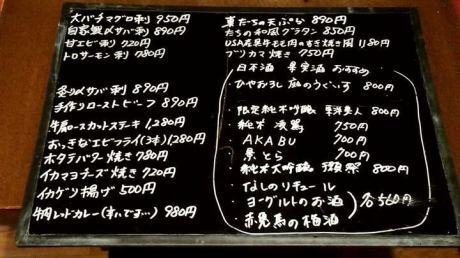 大バチマグロ刺 950円
自家製〆サバ刺 890円
甘エビ刺 720円
トロサーモン刺 780円
炙り〆サバ刺 890円
手作りローストビーフ 890円
牛肩ロースカットステーキ 1,280円
おっきなエビフライ(3本) 1,280円
ホタテバター焼き 780円
イカマヨチーズ焼き 720円
イカゲソ揚げ 500円
牛肉レッドカレー(すいてます…) 980円
真だちの天ぷら 890円
たちの和風グラタン 850円
USA産黒牛もも肉のすき焼き風 1180円
ブリカマ焼き 750円
日本酒 果実酒 おすすめ
ひやおろし 庭のうぐいす 800円
・限定純米吟醸 東洋美人 800円
・純米 凌駕 750円
・AKABU 700円
・景とら 700円
・純米大吟醸 獺祭 800円
・なしのリキュール
・ヨーグルトのお酒
・赤兎馬の梅酒
各560円